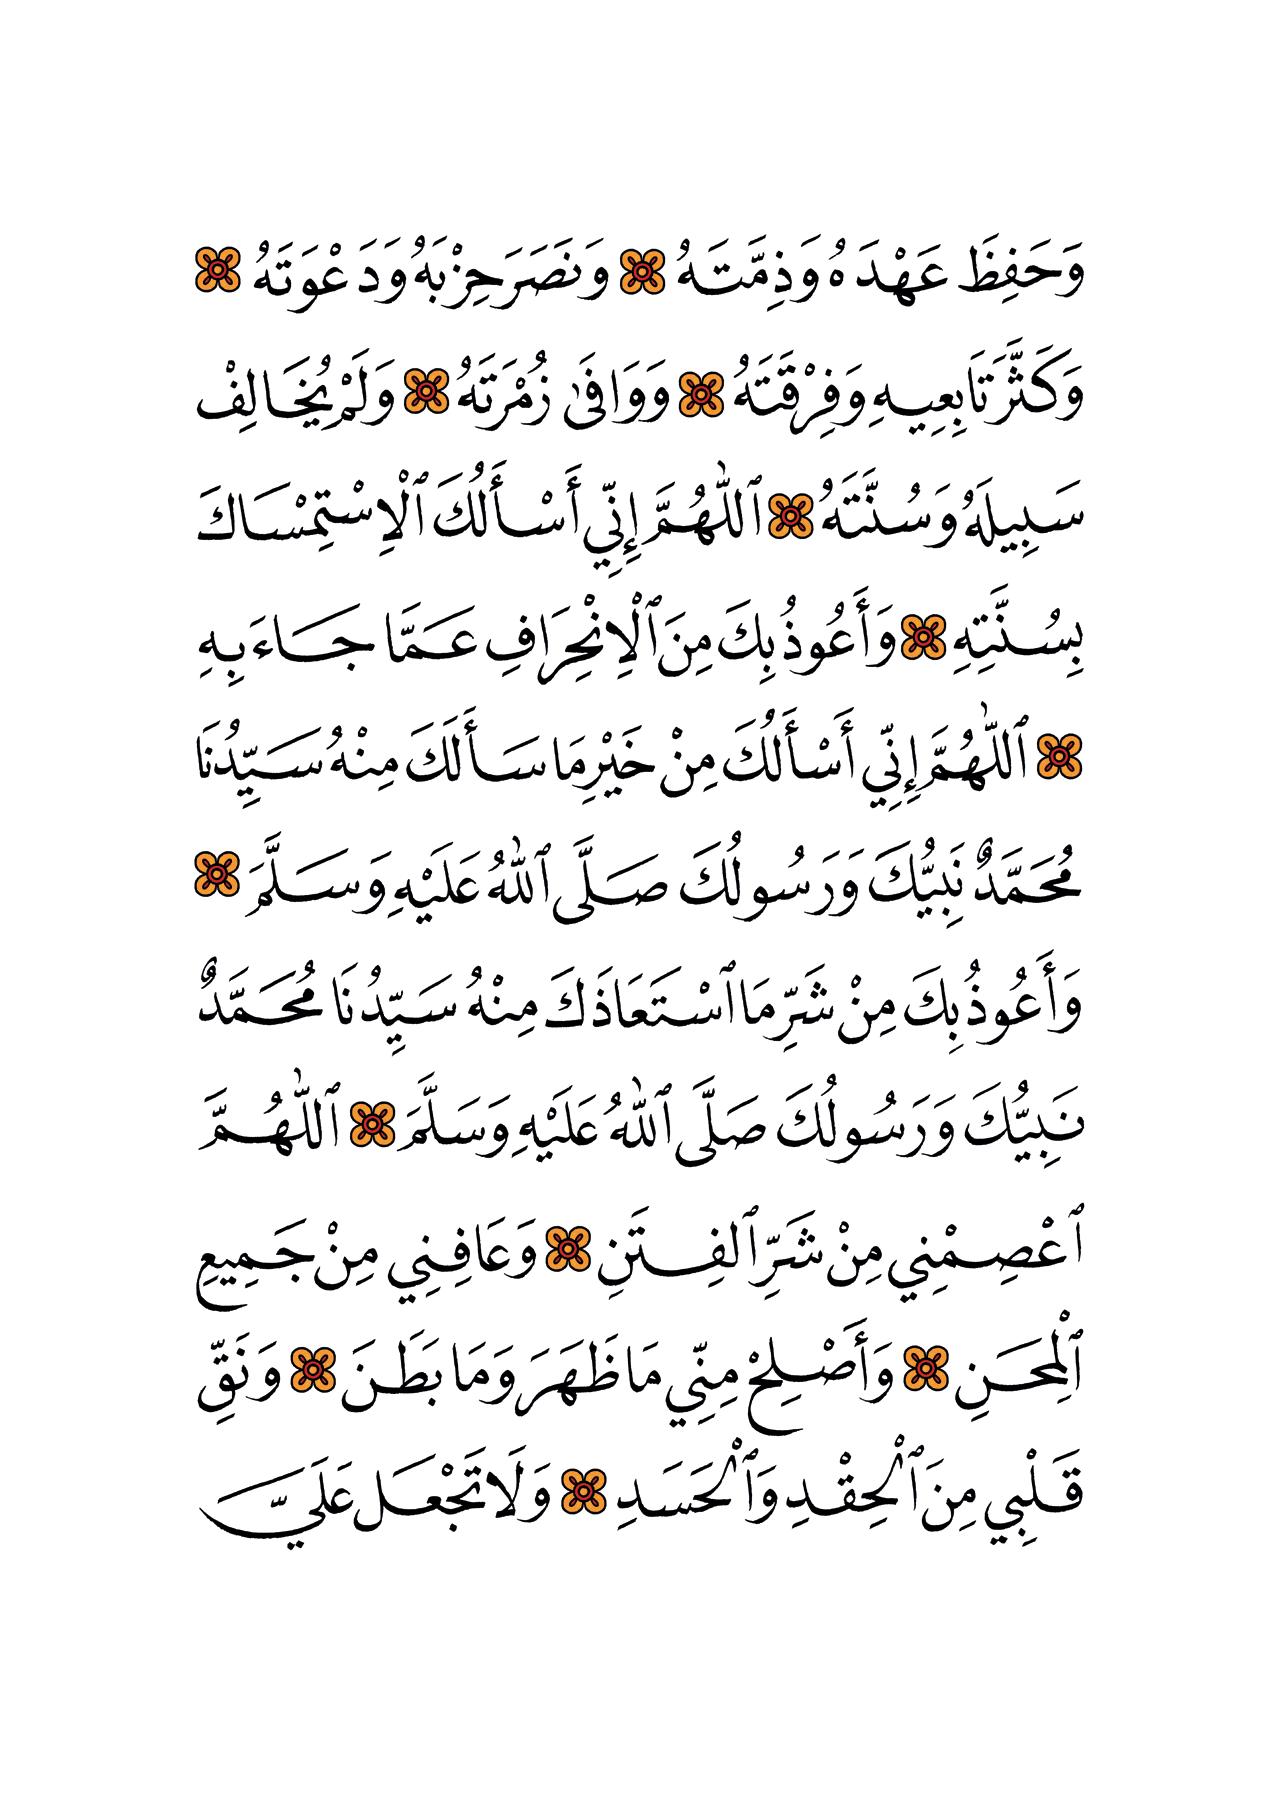 وَحَفِظَ عَهْدَهُ وَذِمَّتَهُ ۞ وَنَصَرَ حِزْبَهُ وَدَعْوَتَهُ ۞
وَكَثَّرَ تَابِعِيهِ وَفِرْقَتَهُ ۞ وَوَافَىٰ زُمْرَتَهُ ۞ وَلَمْ يُخَالِفْ
سَبِيلَهُ وَسُنَّتَهُ ۞ ٱللّٰهُمَّ إِنِّي أَسْأَلُكَ ٱلْاِسْتِمْسَاكَ
بِسُنَّتِهِ ۞ وَأَعُوذُ بِكَ مِنَ ٱلْاِنْحِرَافِ عَمَّا جَاءَ بِهِ
۞ ٱللّٰهُمَّ إِنِّي أَسْأَلُكَ مِنْ خَيْرِ مَا سَأَلَكَ مِنْهُ سَيِّدُنَا
مُحَمَّدٌ نَبِيُّكَ وَرَسُولُكَ صَلَّى ٱللّٰهُ عَلَيْهِ وَسَلَّمَ ۞
وَأَعُوذُ بِكَ مِنْ شَرِّ مَا ٱسْتَعَاذَكَ مِنْهُ سَيِّدُنَا مُحَمَّدٌ
نَبِيُّكَ وَرَسُولُكَ صَلَّى ٱللّٰهُ عَلَيْهِ وَسَلَّمَ ۞ ٱللّٰهُمَّ
ٱعْصِمْنِي مِنْ شَرِّ ٱلفِتَنِ ۞ وَعَافِنِي مِنْ جَمِيعِ
ٱلْمِحَنِ ۞ وَأَصْلِحْ مِنِّي مَا ظَهَرَ وَمَا بَطَنَ ۞ وَنَقِّ
قَلْبِي مِنَ ٱلْحِقْدِ وَٱلْحَسَدِ ۞ وَلَا تَجْعَل عَلَيَّ